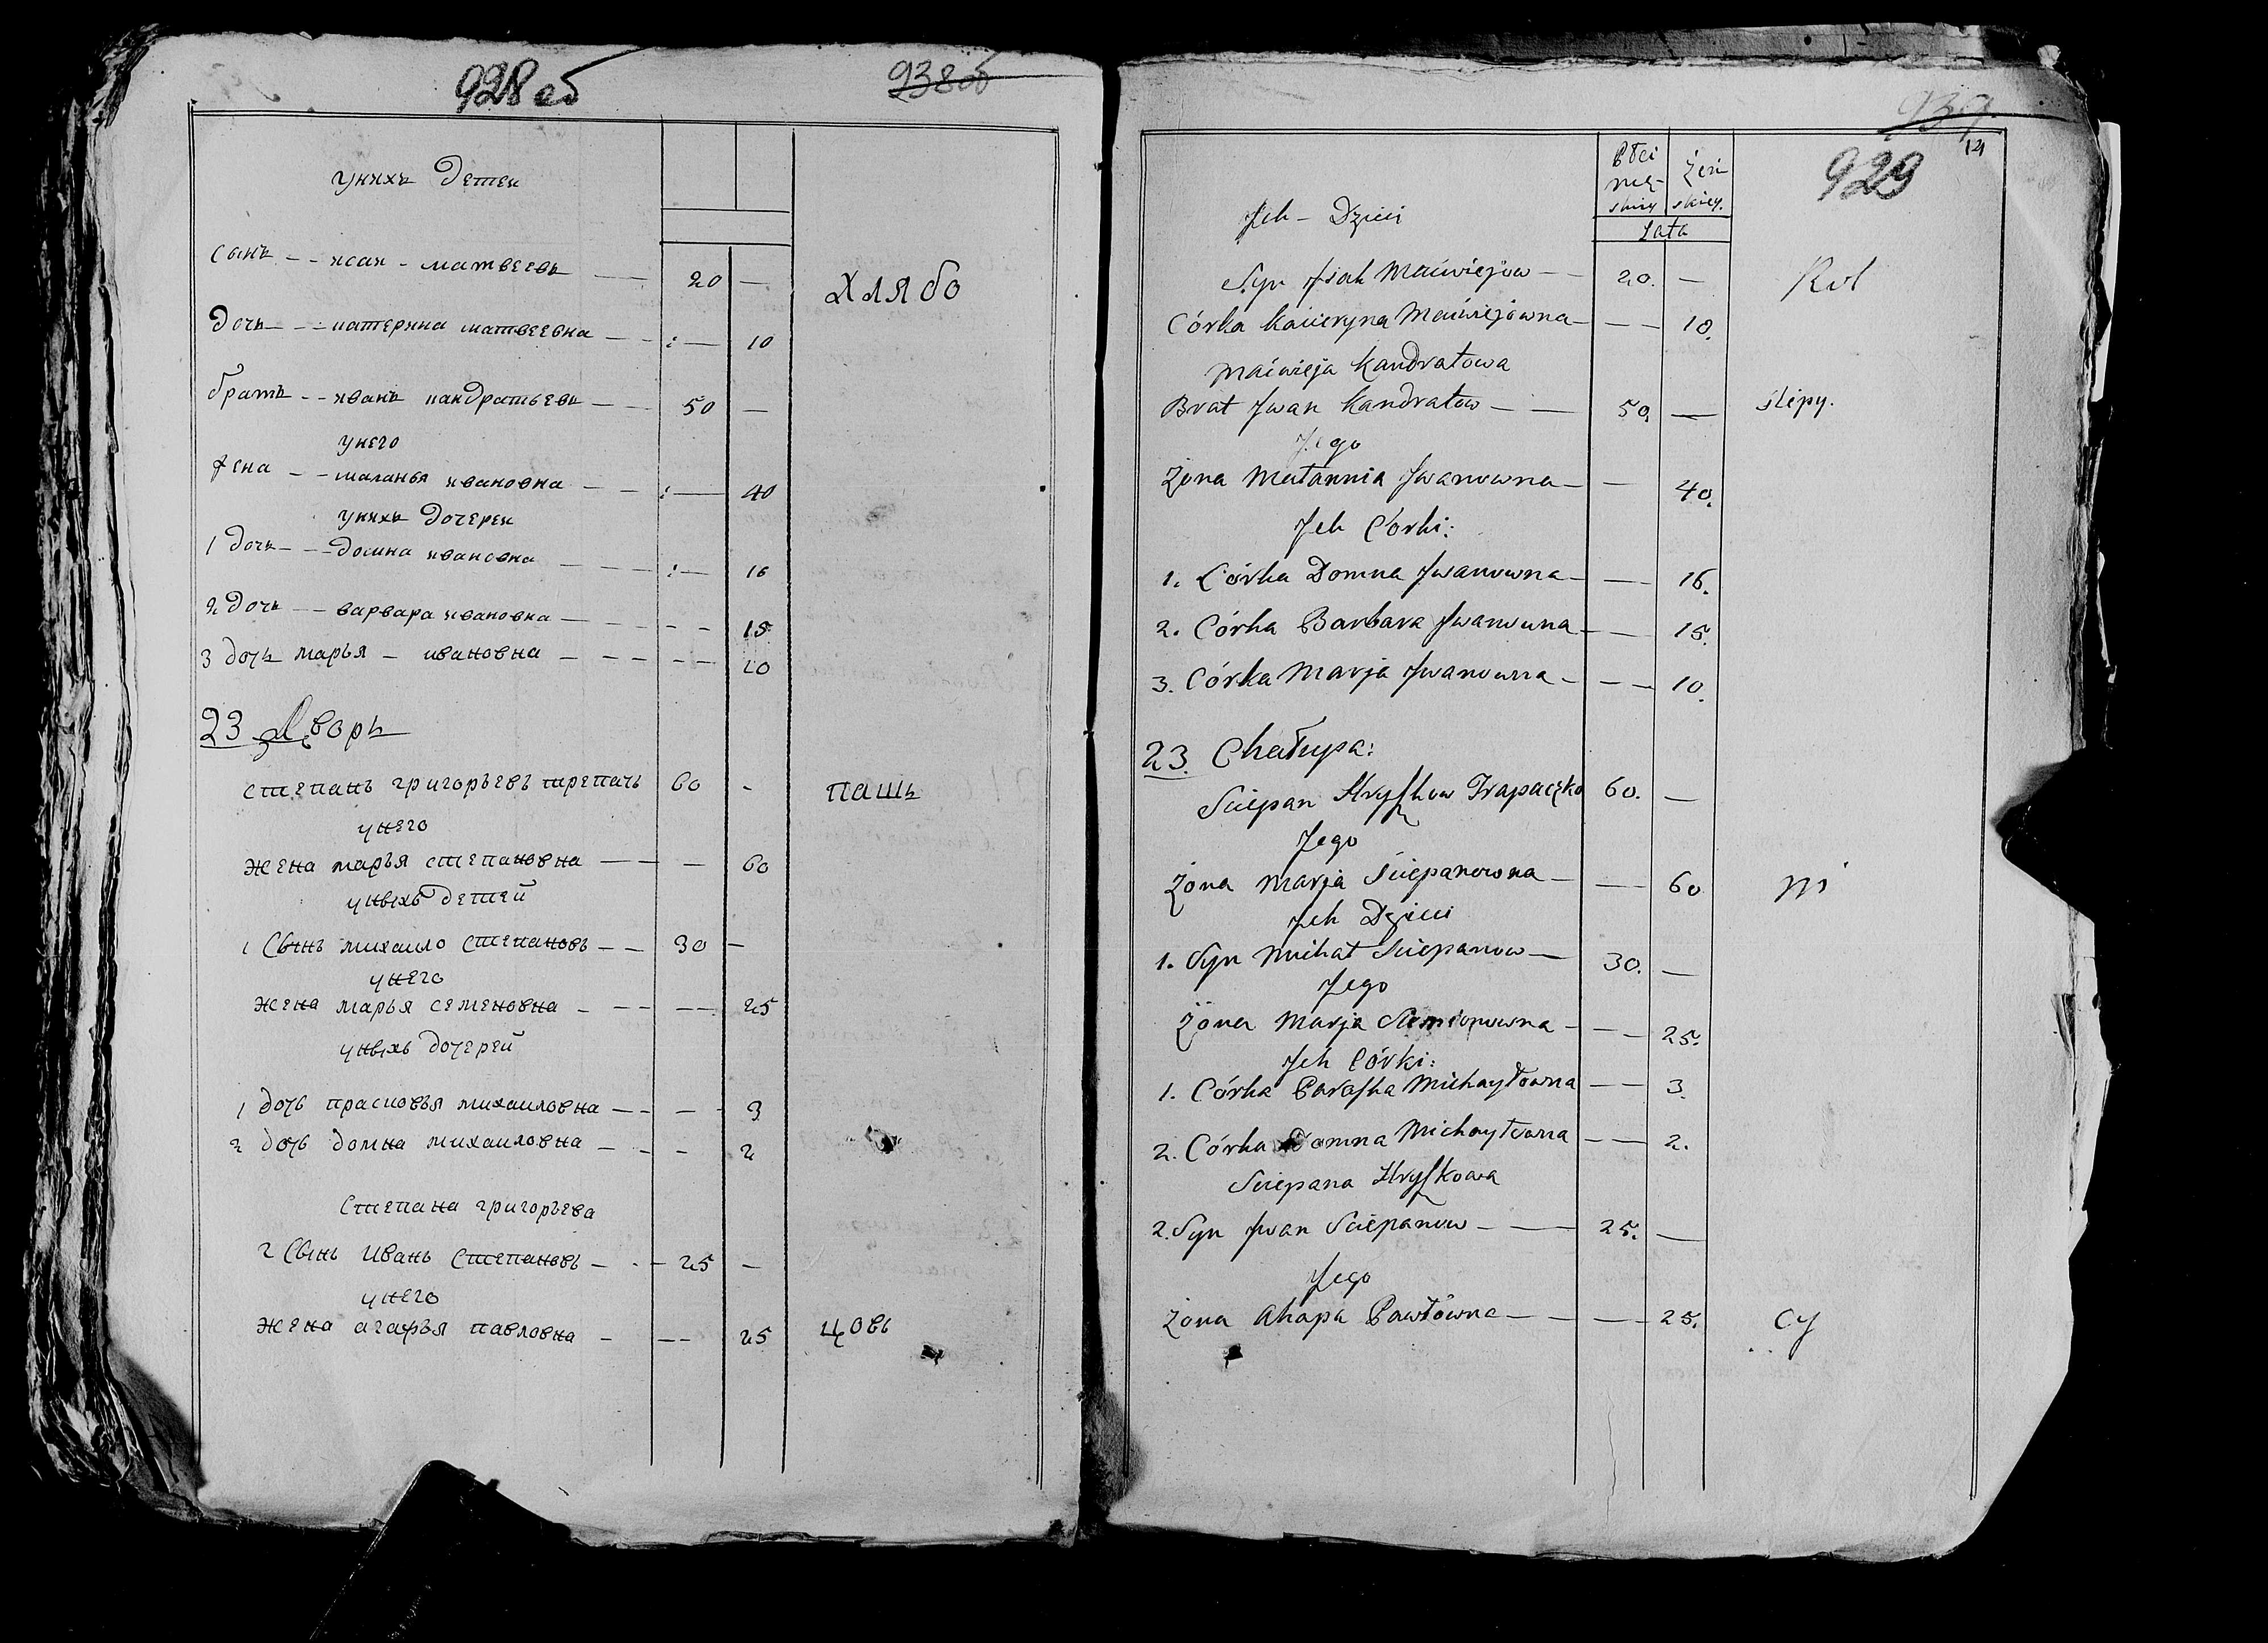 928 об
938 об
унихъ детеи
сынъ - - исаи - матвеевъ — 20 —
хлябо
дочь - - катерина матвеевна - - : — 10
братъ - - иванъ кандратьевъ — 50 —
унего
жена - - маланья ивановна - - : — 40
унихъ дочереи
1 дочь - - домна ивановна - - - : — 16
2 дочь - - варвара ивановна — - - - 15
3 дочь марья - ивановна - - - - - 10
23 Дворъ
степанъ григорьевъ трепачь 60 -
пашъ
унего
жена марья степановна — — - 60
уныхъ детей
1 Сынъ михаило степановъ - - 30 -
унего
жена марья семеновна - - - - - 25
уныхъ дочерей
1 дочь прасковья михаиловна - - - 3
2 дочь домна михаиловна - - - 2
Степана григорьева
2 Сынъ Иванъ Степановъ - - - 25 -
унего
жена агафья павловна - - - 25
цовъ
939
14
929
Płci mę- skiey
żeń skiey.
Lata
Jch - Dzieci
Syn Jsak Maciviejow — 20. —
Rol
Córka Kacieryna Maciviejowna — — — 10.
Macivieja Kandratowa
Brat Jwan Kandratow — — 50. —
slepy.
Jego
Żona Małannia Jwanowna — — 40.
Jch Corki:
1. Córka Domna Jwanowna — — 16.
2. Córka Barbara Jwanowna — — 15.
3. Córka Marja Jwanowna — — — 10.
23. Chałupa:
Sciepan Hryszkow Trapaczko 60. —
Jego
Żona Marja Sciepanowna — — 60
ni
Jch Dzieci
1. Syn Michał Sciepanow — 30. —
Jego
Żona Marja Siemionowna — — — 25.
Jch Córki:
1. Córka Paraska Michayłowna — — 3.
2. Córka Domna Michayłowna — — 2.
Sciepana Hryszkowa
2. Syn Jwan Sciepanow — — 25. —
Jego
Żona Ahapa Pawłówna — — — 25.
cy